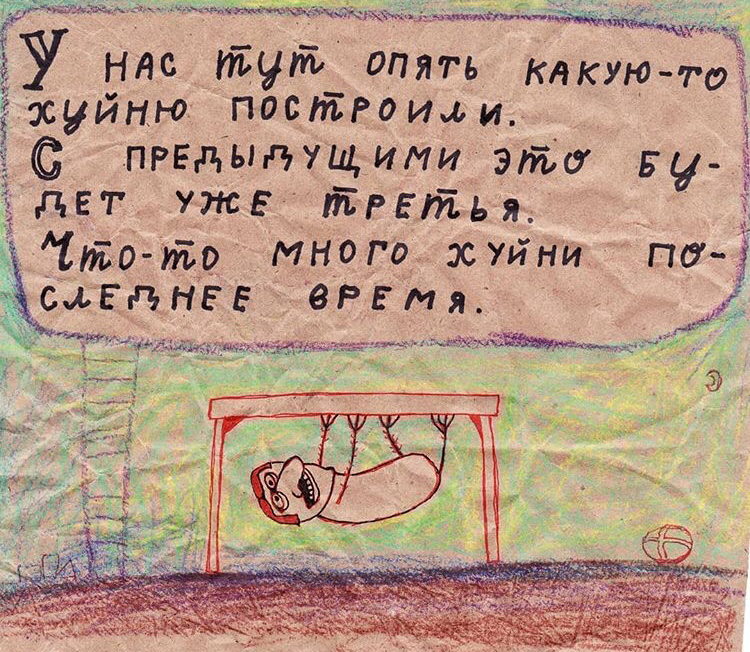 У нас тут опять какую-то
хуйню построили.
С предыдущими это бу-
дет уже третья.
Что-то много хуйни по-
следнее время.